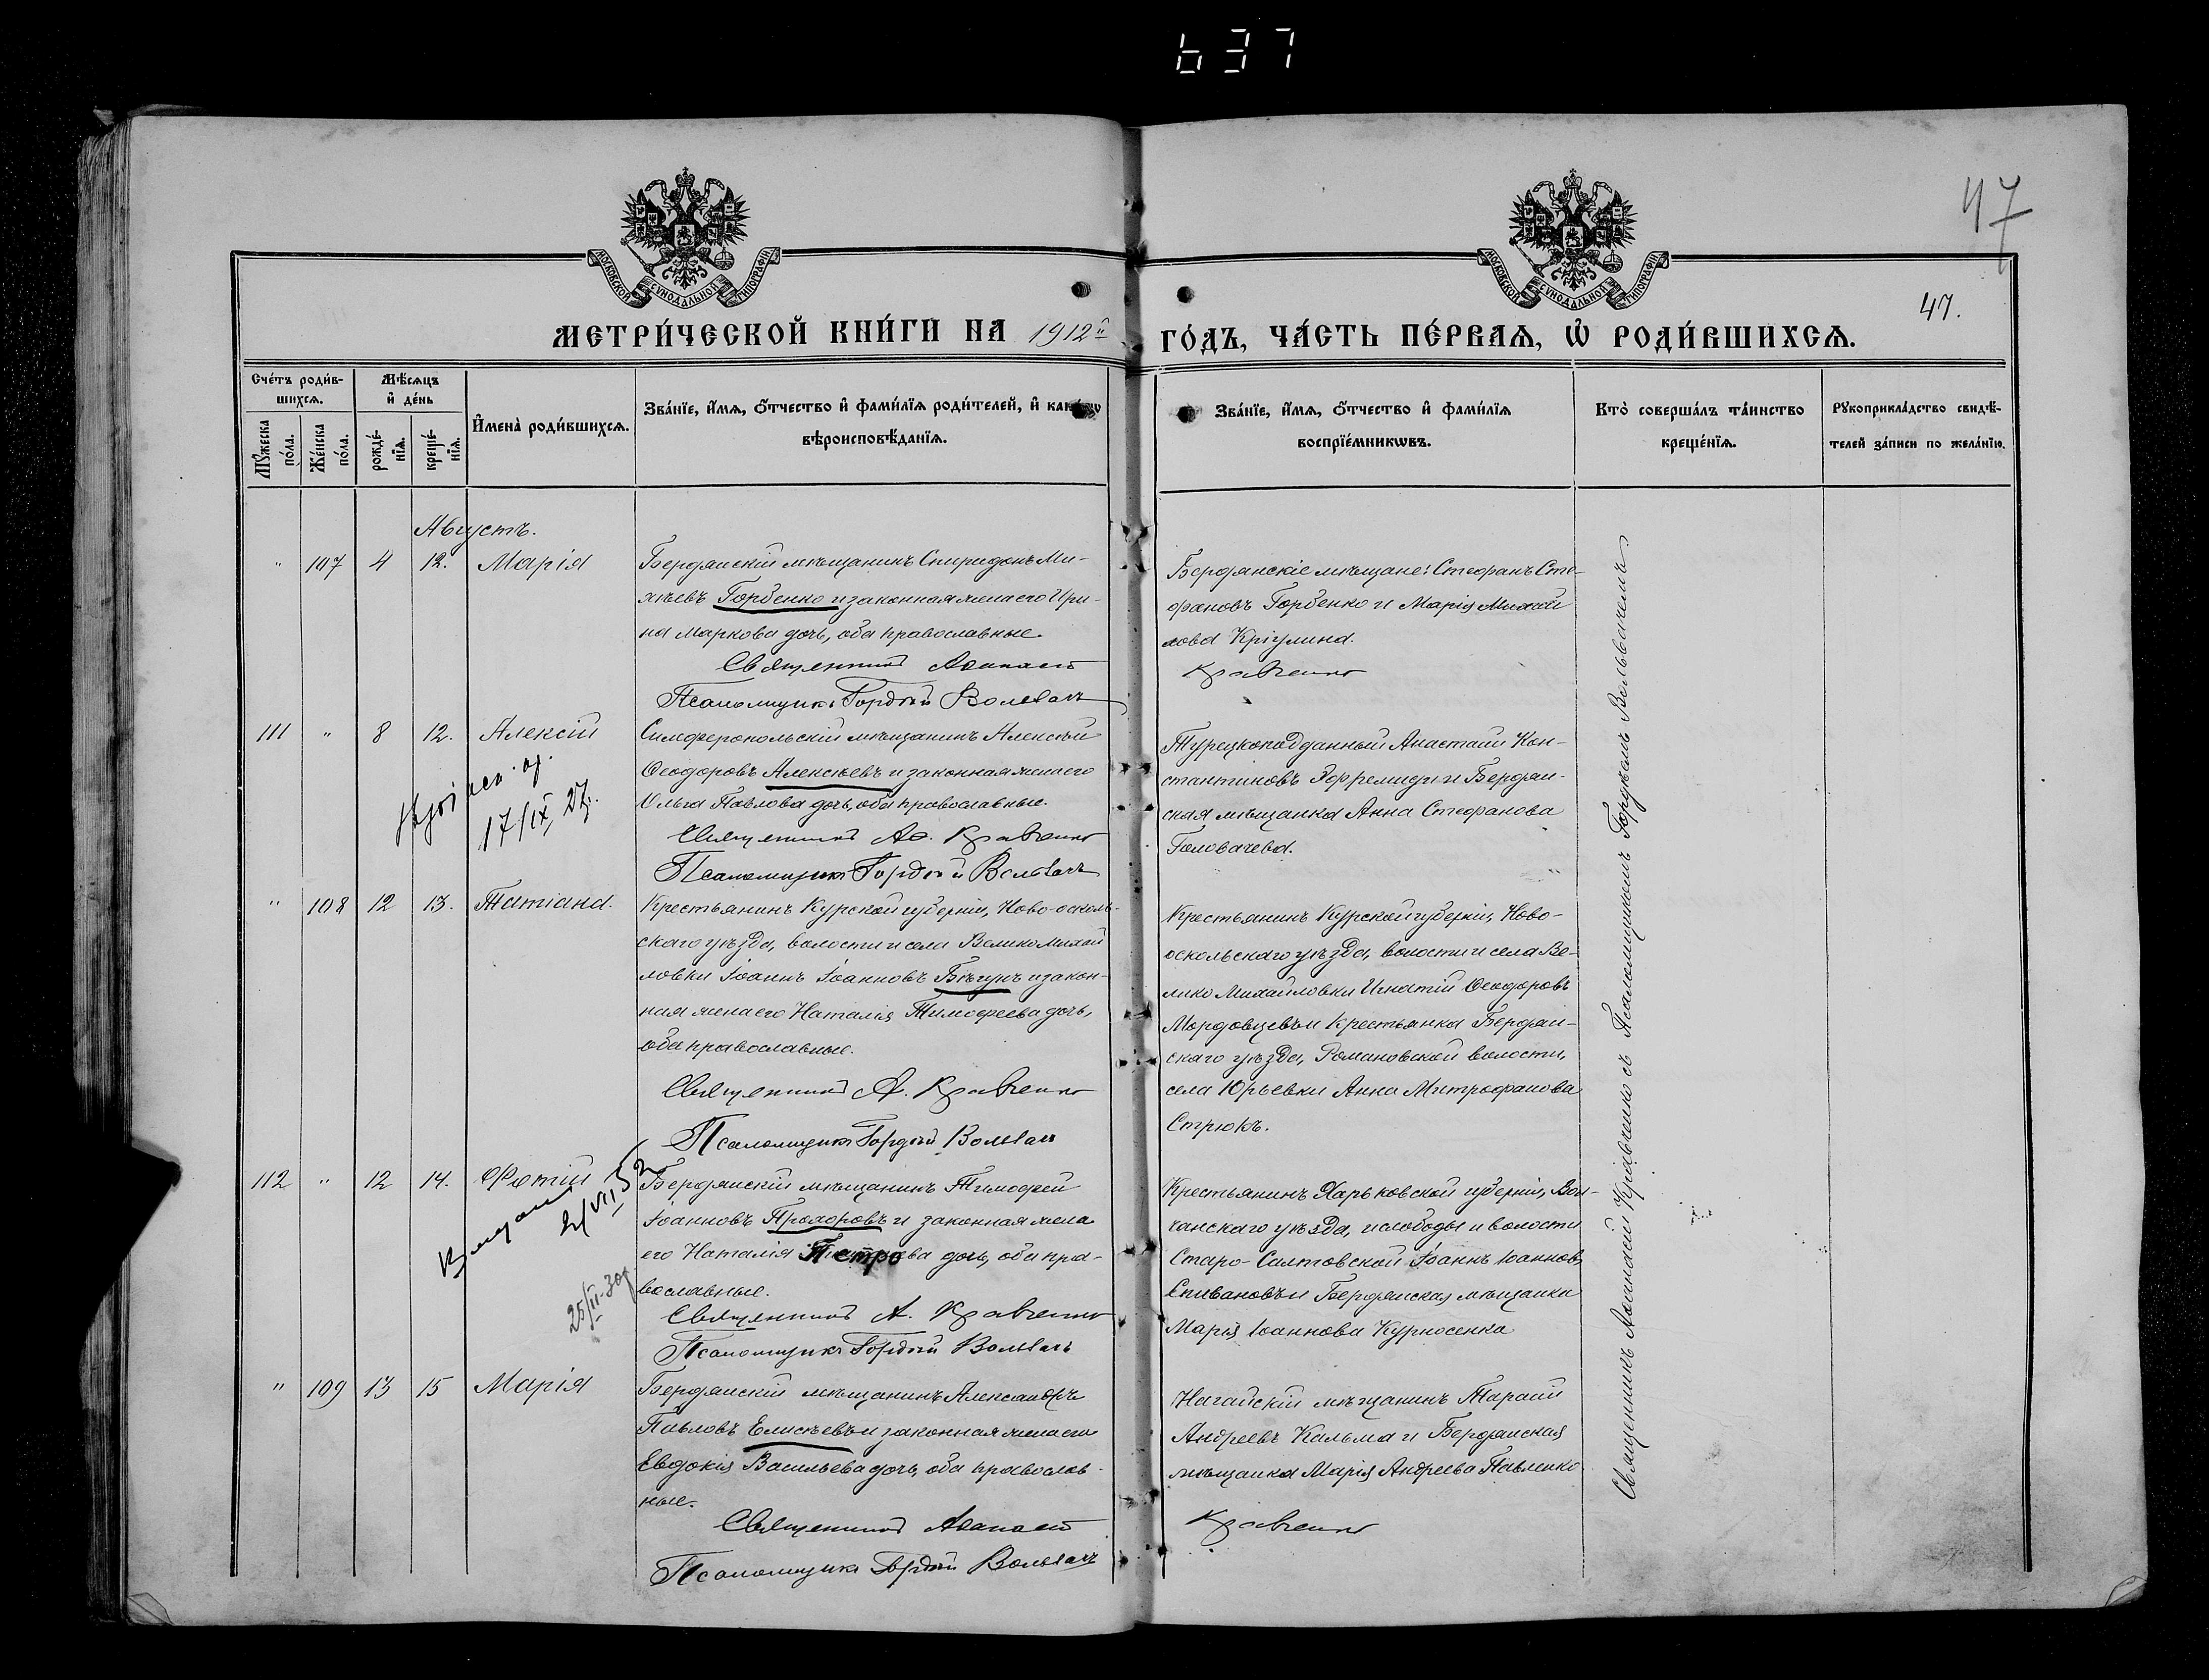 637
47
47.
МОСКОВСКОЙ СѴНОДАЛЬНОЙ ТИПОГРАФІИ
МОСКОВСКОЙ СѴНОДАЛЬНОЙ ТИПОГРАФІИ
МЕТРИ́ЧЕСКОЙ КНИ́ГИ НА 1912й ГО́ДЪ, ЧА́СТЬ ПЕ́РВАѦ, Ѡ҆ РОДИ́ВШИХСѦ.
Сче́тъ роди́в-
шихсѧ.
Мꙋ́жеска по́ла.
Же́нска по́ла.
Мѣ́сѧцъ
и҆ де́нь
рожде́-
нїѧ.
креще́-
нїѧ.
И҆мена̀ роди́вшихсѧ.
Зва́нїе, и҆́мѧ, ѻ҆́тчество и҆ фами́лїѧ роди́телей, и҆
вѣроисповѣ́данїѧ.
Зва́нїе, и҆́мѧ, ѻ҆́тчество и҆ фами́лїѧ
воспрїе́мникѡвъ.
Кто̀ соверша́лъ та́инство
креще́нїѧ.
Рꙋкоприкла́дство свидѣ́-
телей за́писи по жела́нїю.
Августъ.
" 107 4 12. Марія
Бердянскій мѣщанинъ Спиридонъ Ми-
хѣевъ Горбенко и законная жена его Ири-
на Маркова дочь, оба православные.
Священникъ Аѳанасій
Псаломщикъ Гордѣй Вольвачъ
Бердянскіе мѣщане: Стефанъ Сте-
фановъ Горбенко и Марія Михаи
лова
Кравченко
111 " 8 12. Алексій
17/IX 27.
Симферопольскій мѣщанинъ Алексѣй
Ѳеодоровъ Алексѣевъ и законная жена его
Ольга Павлова дочь, оба православные.
Священникъ Аѳ. Кравченко
Псаломщикъ Гордѣй Вольвачъ
Турецкоподданный Анастасій Кон-
стантиновъ Эфремиди и Бердян-
ская мѣщанка Анна Стефанова
Головачева.
" 108 12 13. Татіана.
Крестьянинъ Курской губерніи, Ново-осколь-
скаго уѣзда, волости и села Велико Михай
ловки Іоаннъ Іоанновъ Бѣгунъ и закон-
ная жена его Наталія Тимофеева дочь,
оба православные.
Священникъ А. Кравченко
Псаломщикъ Гордѣй Вольвачъ
Крестьянинъ Курской губерніи, Ново-
оскольскаго уѣзда, волости и села Ве-
лико Михайловки Игнатій Ѳеодоровъ
Мордовцевъ и крестьянка Бердян-
скаго уѣзда, Романовской волости,
села Юрьевки Анна Митрофанова
Стрюкъ.
112 " 12 14. Фотій
25/II-30
Бердянскій мѣщанинъ Тимофей
Іоанновъ Прохоровъ и законная жена
его Наталія Петрова дочь, оба пра-
вославные.
Священникъ А. Кравченко
Псаломщикъ Гордѣй Вольвачъ
Крестьянинъ Харьковской губерніи, Вол-
чанскаго уѣзда, и слободы и волости
Старо-Салтовской Іоаннъ Іоанновъ
Спивановъ и Бердянская мѣщанка
Марія Іоаннова Курносенка
" 109 13 15 Марія
Бердянскій мѣщанинъ Александръ
Павловъ Елисѣевъ и законная жена его
Евдокія Васильева дочь, оба православ-
ные.
Священникъ Аѳанасій
Псаломщикъ Гордѣй Вольвачъ
Ногайскій мѣщанинъ Тарасій
Андреевъ Кальма и Бердянская
мѣщанка Марія Андреева Павленко
Кравченко
Священникъ Аѳанасій Кравченко съ Псаломщикомъ Гордѣемъ Вольвачемъ